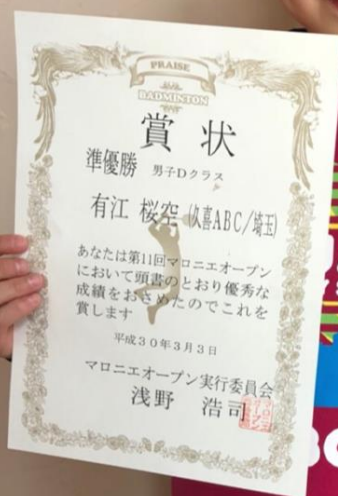 PRAISE
BADMINTON
賞状
準優勝 男子Dクラス
有江 桜空 (久喜ABC/埼玉)
あなたは第11回マロニエオープン
において頭書のとおり優秀な
成績をおさめたのでこれを
賞します
平成30年3月3日
マロニエオープン実行委員会
浅野 浩司